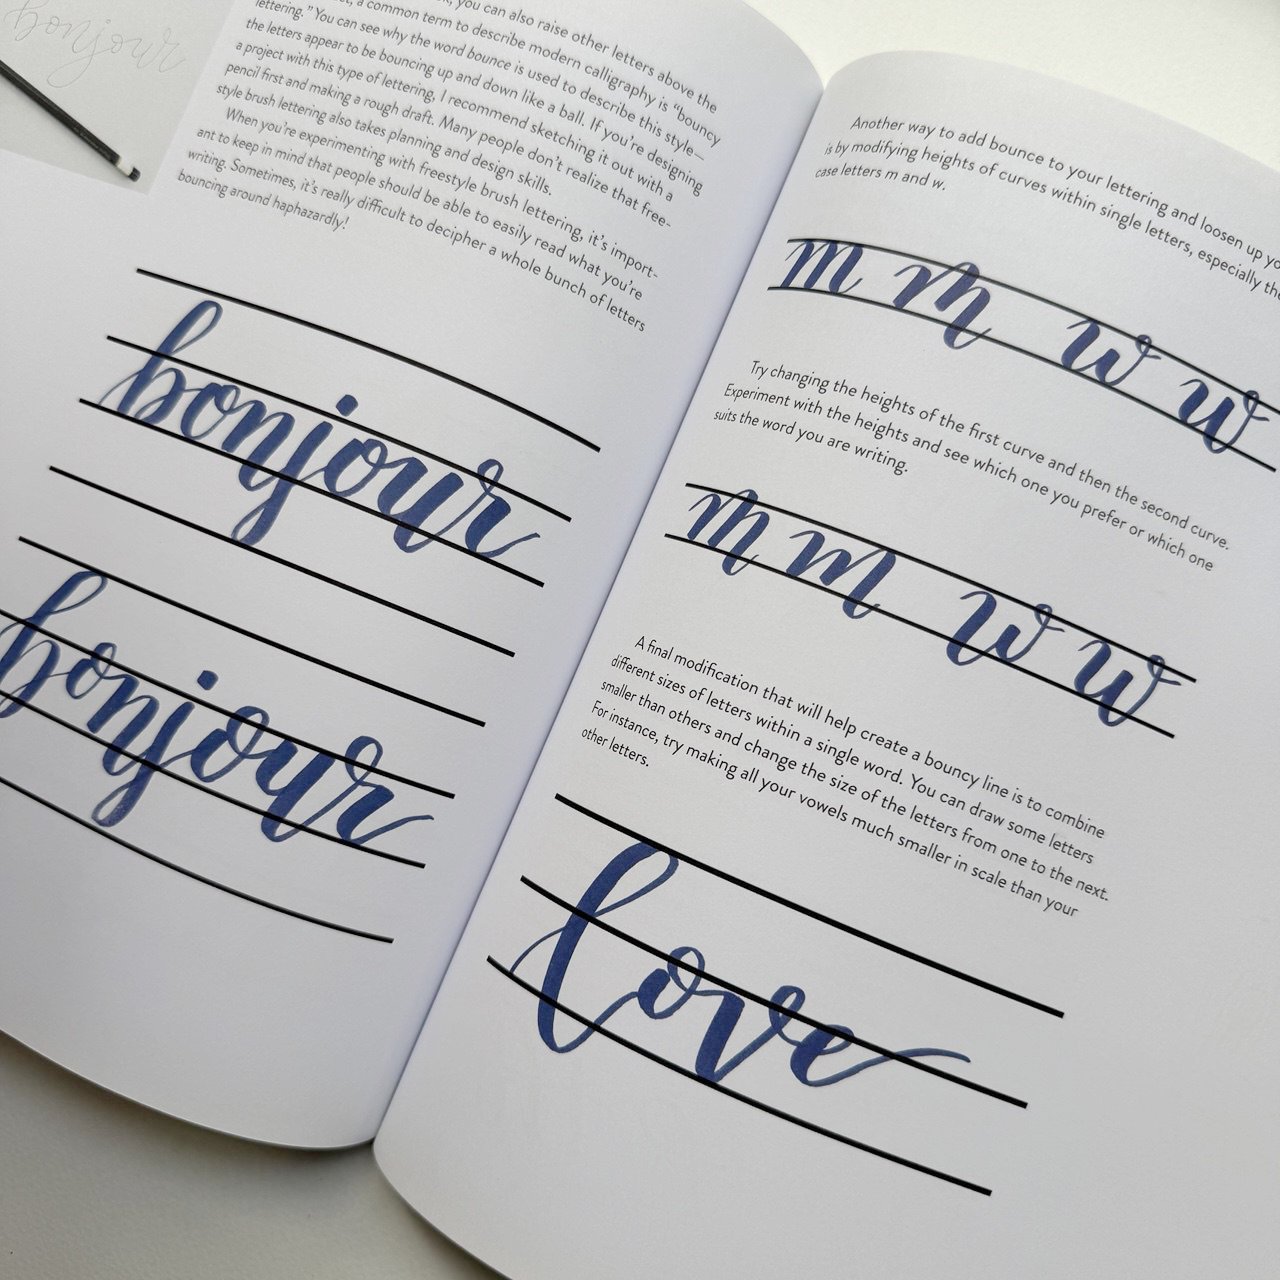 bonjour
you can also raise other letters above the
a common term to describe modern calligraphy is “bouncy
lettering.” You can see why the word bounce is used to describe this style—
the letters appear to be bouncing up and down like a ball. If you’re designing
a project with this type of lettering, I recommend sketching it out with a
pencil first and making a rough draft. Many people don’t realize that free-
style brush lettering also takes planning and design skills.
When you’re experimenting with freestyle brush lettering, it’s import-
ant to keep in mind that people should be able to easily read what you’re
writing. Sometimes, it’s really difficult to decipher a whole bunch of letters
bouncing around haphazardly!
bonjour
bonjour
Another way to add bounce to your lettering and loosen up
is by modifying heights of curves within single letters, especially
case letters m and w.
m m w w
Try changing the heights of the first curve and then the second curve.
Experiment with the heights and see which one you prefer or which one
suits the word you are writing.
m m w w
A final modification that will help create a bouncy line is to combine
different sizes of letters within a single word. You can draw some letters
smaller than others and change the size of the letters from one to the next.
For instance, try making all your vowels much smaller in scale than your
other letters.
love